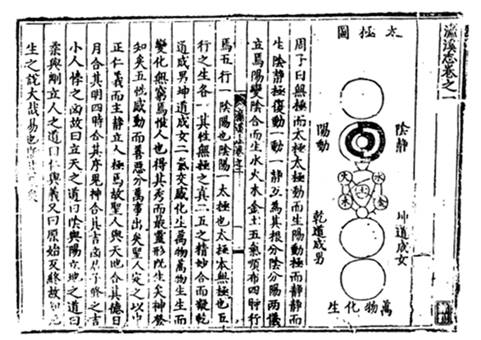 濂溪志卷之一
太極圖
陰靜
陽動
火
水
木
金
坤道成女
乾道成男
萬物化生
周子曰無極而太極太極動而生陽動極而靜靜而
生陰靜極復動一動一靜互為其根分陰分陽兩儀
立焉陽變陰合而生水火木金土五氣順布四時行
焉五行一陰陽也陰陽一太極也太極本無極也五
行之生各一其性無極之真二五之精妙合而凝乾
道成男坤道成女二氣交感化生萬物萬物生生而
變化無窮焉惟人也得其秀而最靈形既生矣神發
知矣五性感動而善惡分萬事出矣聖人定之以中
正仁義而主靜立人極焉故聖人與天地合其德日
月合其明四時合其序鬼神合其吉凶君子修之吉
小人悖之凶故曰立天之道曰陰與陽立地之道曰
柔與剛立人之道曰仁與義又曰原始反終故知死
生之說大哉易也